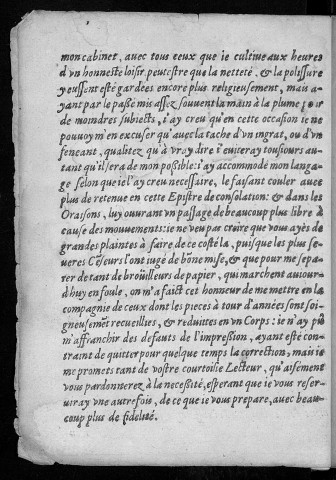 mon cabinet, avec tous ceux que ie cultiue aux heures
d'vn honneste loisir, peutestre que la netteté, & la polissure
y eussent esté gardees encore plus religieusement, mais a-
yant par le passé mis assez souuent la main à la plume pour
de moindres subiects, i'ay creu qu'en cette occasion ie ne
pouuoy m'en excuser qu'auec la tache d'vn ingrat, ou d'vn
feneant, qualitez qu'à vray dire i'euiteray tousiours au-
tant qu'il sera de mon possible: i'ay accommodé mon langa-
ge selon que ie l'ay creu necessaire, le faisant couler auec
plus de retenue en cette Epistre de consolation: & dans les
Oraisons, luy ouurant vn passage de beaucoup plus libre à
cause des mouuements: ie ne veu pas croire que vous ayés de
grandes plaintes à faire de ce costé la, puisque les plus se-
ueres Céseurs l'ont iugé de bône mise, & que pour me sepa-
rer de tant de brouilleurs de papier, qui marchent auiour-
d'huy en foule, on m'a faict cet honneur de me mettre en la
compagnie de ceux dont les pieces à tour d'années sont soi-
gneusemēt recueillies, & reduites en vn Corps: ie n'ay pû
m'affranchir des defauts de l'impression, ayant esté con-
traint de quitter pour quelque temps la correction, mais ie
me promets tant de vostre courtoisie Lecteur, qu'aisement
vous pardonnerez à la necessité, esperant que ie vous reser-
uiray vne autrefois, de ce que ie vous prepare, auec beau-
coup plus de fidelité.